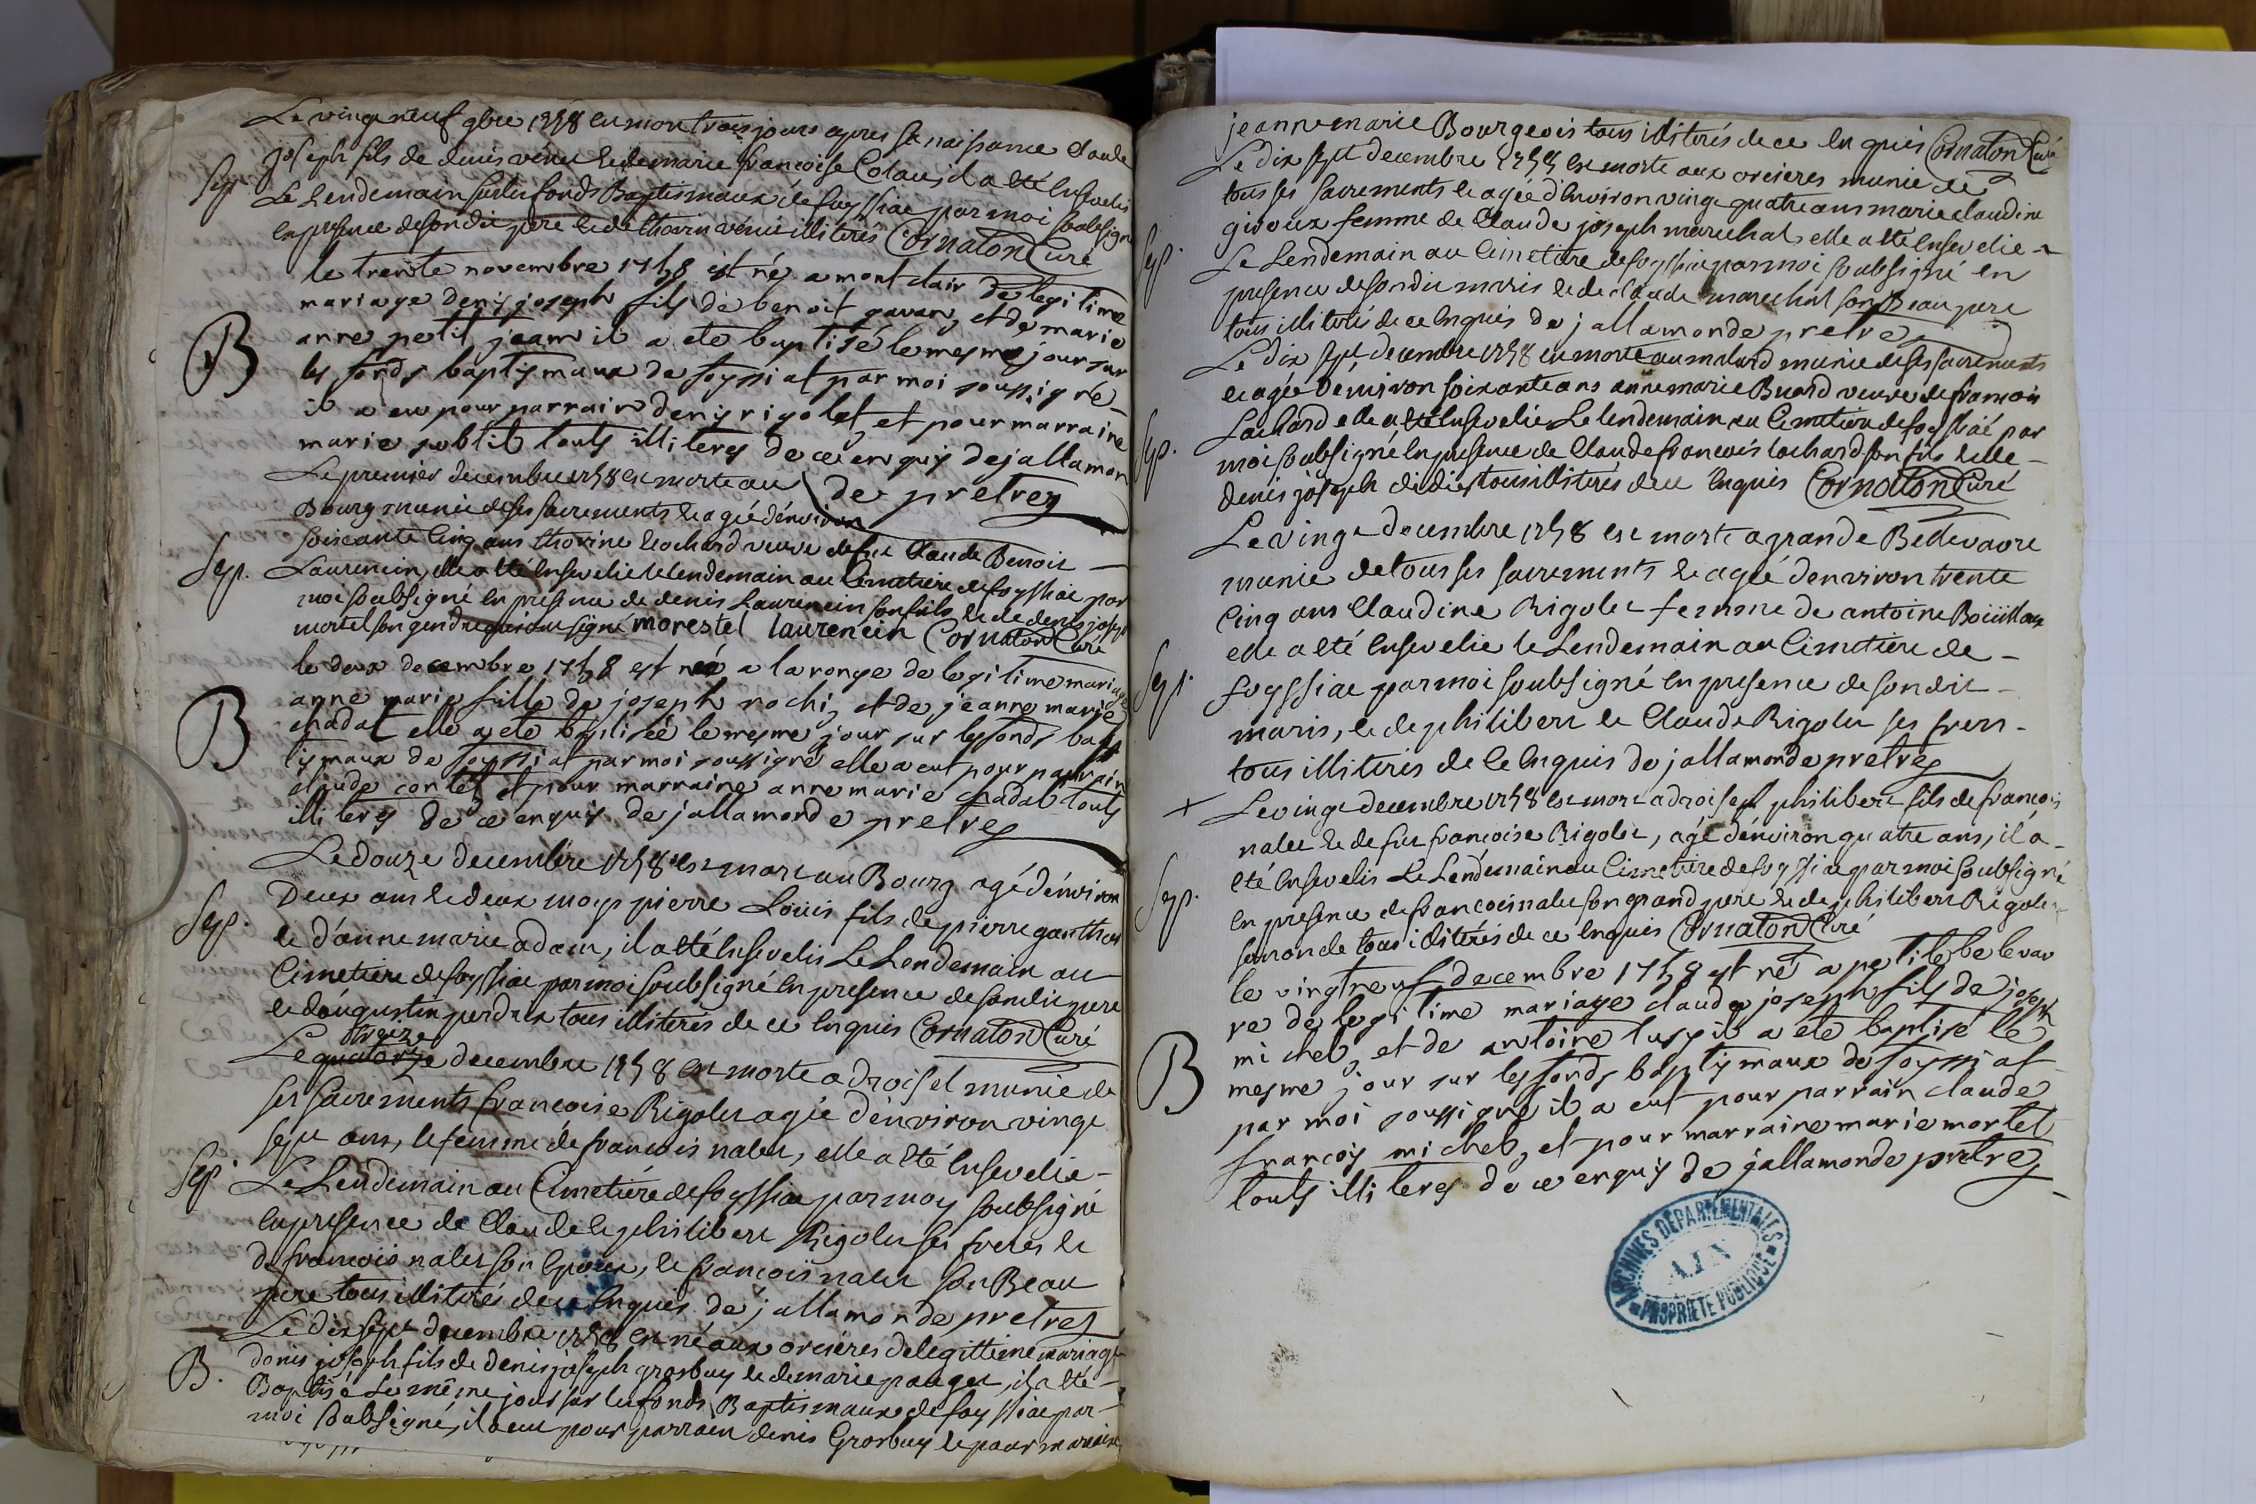 Le vingt neuf 9bre 1758 est mort trois jours apres sa naissance Claude
joseph fils de denis véniere et de marie francoise Colau, il a été Ensevelis
Sep.
Le Lendemain sur les fonds Baptismaux de foyssiac par moi soubsigné
En presence de son dit pere et de illiterés Cornaton Curé
le trente novembre 1758 est né a mont clair de legitime
mariage denis joseph fils de benoit et de marie
B
anne petit jean il a ete baptisé le mesme jour sur
les fonds baptismaux de foyssiat par moi soussigné
il a eu pour parrain denis rigolet et pour marraine
marie subtil touts illiteres de ce enquis dejallamon
de pretres
Le premier decembre 1758 est morte au
Bourg munie de ses sacrements et agée d'environ
soixante Cinq ans thorine Lochard veuve de feu Claude Benoit
Sep.
Laurencin, elle a été Ensevelie le lendemain au Cimetiere de foyssiac par
moi soubsigné en presence de denis Laurencin son fils et de denis joseph
mortel son gendre qui ont signé morestel laurencin Cornaton Curé
le deux decembre 1758 est née a la ronge de legitime mariage
anne marie fille de joseph rochi, et de jeanne marie
B
chadal elle a ete baptisée le mesme jour sur les fonds bap
tismaux de foyssiat par moi soussigné elle a eut pour parrain
claude contet et pour marraine anne marie chadal touts
illiteres de ce enquis dejallamonde pretres
Le douze decembre 1758 est mort au Bourg agé d'environ
Deux ans et deux moys pierre Loüis fils de pierre gauthier
Sep.
et d'anne marie adam, il a été Ensevelis Le Lendemain au
Cimetiere de foyssiac par moi soubsigné En presence de son dit pere
et d'augustin perdrix tous illiterés de ce Enquis Cornaton Curé
treize
Le quatorze decembre 1758 est morte a droisel munie de
ses sacrements francoise Rigolet agée d'environ vingt
sept ans, et femme de francois nalet, elle a été Ensevelie
Sep.
Le Lendemain au Cimetière de foyssiac par moy soubsigné
En presence de Claude et philibert Rigolet ses freres et
de francois nalet son Epoux, et francois nalet son Beau
pere tous illiterés de ce Enquis dejallamonde pretres
Le dix sept decembre 1758 est né aux orcieres de legittime mariage
B.
denis joseph fils de denis joseph grosbuy et de marie pauget, il a été
Baptisé Le même jour sur les fonds Baptismaux de foyssiac par
moi soubsigné, il a eu pour parrain denis Grosbuy et pour marraine
jeanne marie Bourgeois tous illiterés de ce Enquis Cornaton Curé
Le dix sept decembre 1758 est morte aux orcieres munie de
tous ses sacrements et agée d'Environ vingt quatre ans marie claudine
giroux femme de Claude joseph marechal, elle a été Ensevelie
Sep.
Le Lendemain au Cimetiere de foyssiac par moi soubsigné en
presence de son dit maris et de claude marechal son Beau pere
tous illiterés de ce Enquis de jallamonde pretres
Le dix sept decembre 1758 est morte au malard munie de ses sacrements
et agée d'environ soixante ans anne marie Buard veuve de francois
Sep.
Lochard elle a été Ensevelie Le lendemain au Cimetiere de foyssiac par
moi soubsigné En presence de Claude francois Lochard son fils et de
denis joseph didier tous illiterés de ce Enquis Cornaton Curé
Le vingt decembre 1758 est morte a grande Bellevavre
munie de tous ses sacrements et agée d'environ trente
Cinq ans Claudine Rigolet femme de antoine Boüilloux
elle a été Ensevelie le Lendemain au Cimetiere de
Sep.
foyssiac par moi soubsigné en presence de son dit
maris, et de philibert et Claude Rigolet ses freres
tous illiterés de ce Enquis de jallamonde pretres
+ Le vingt decembre 1758 est mort a droisel philibert fils de francois
nalet et de feu francoise Rigolet, agé d'environ quatre ans, il a
Sep.
été Ensevelis Le Lendemain au Cimetiere de foyssiac par moi soubsigné
En presence de francois nalet son grand pere et de philibert Rigolet
son oncle tous illiterés de ce Enquis Cornaton Curé
le vingt neuf decembre 1758 est né a petite be levav
re de legitime mariage claude joseph fils de joseph
michel, et de antoine il a ete baptisé le
B
mesme jour sur les fonds baptismaux de foyssiat
par moi soussigné il a eut pour parrain claude
francoys michel, et pour marraine marie mortel
touts illiteres de ce enquis de jallamonde pretres
ARCHIVES DEPARTEMENTALES
AIN
PROPRIÉTÉ PUBLIQUE